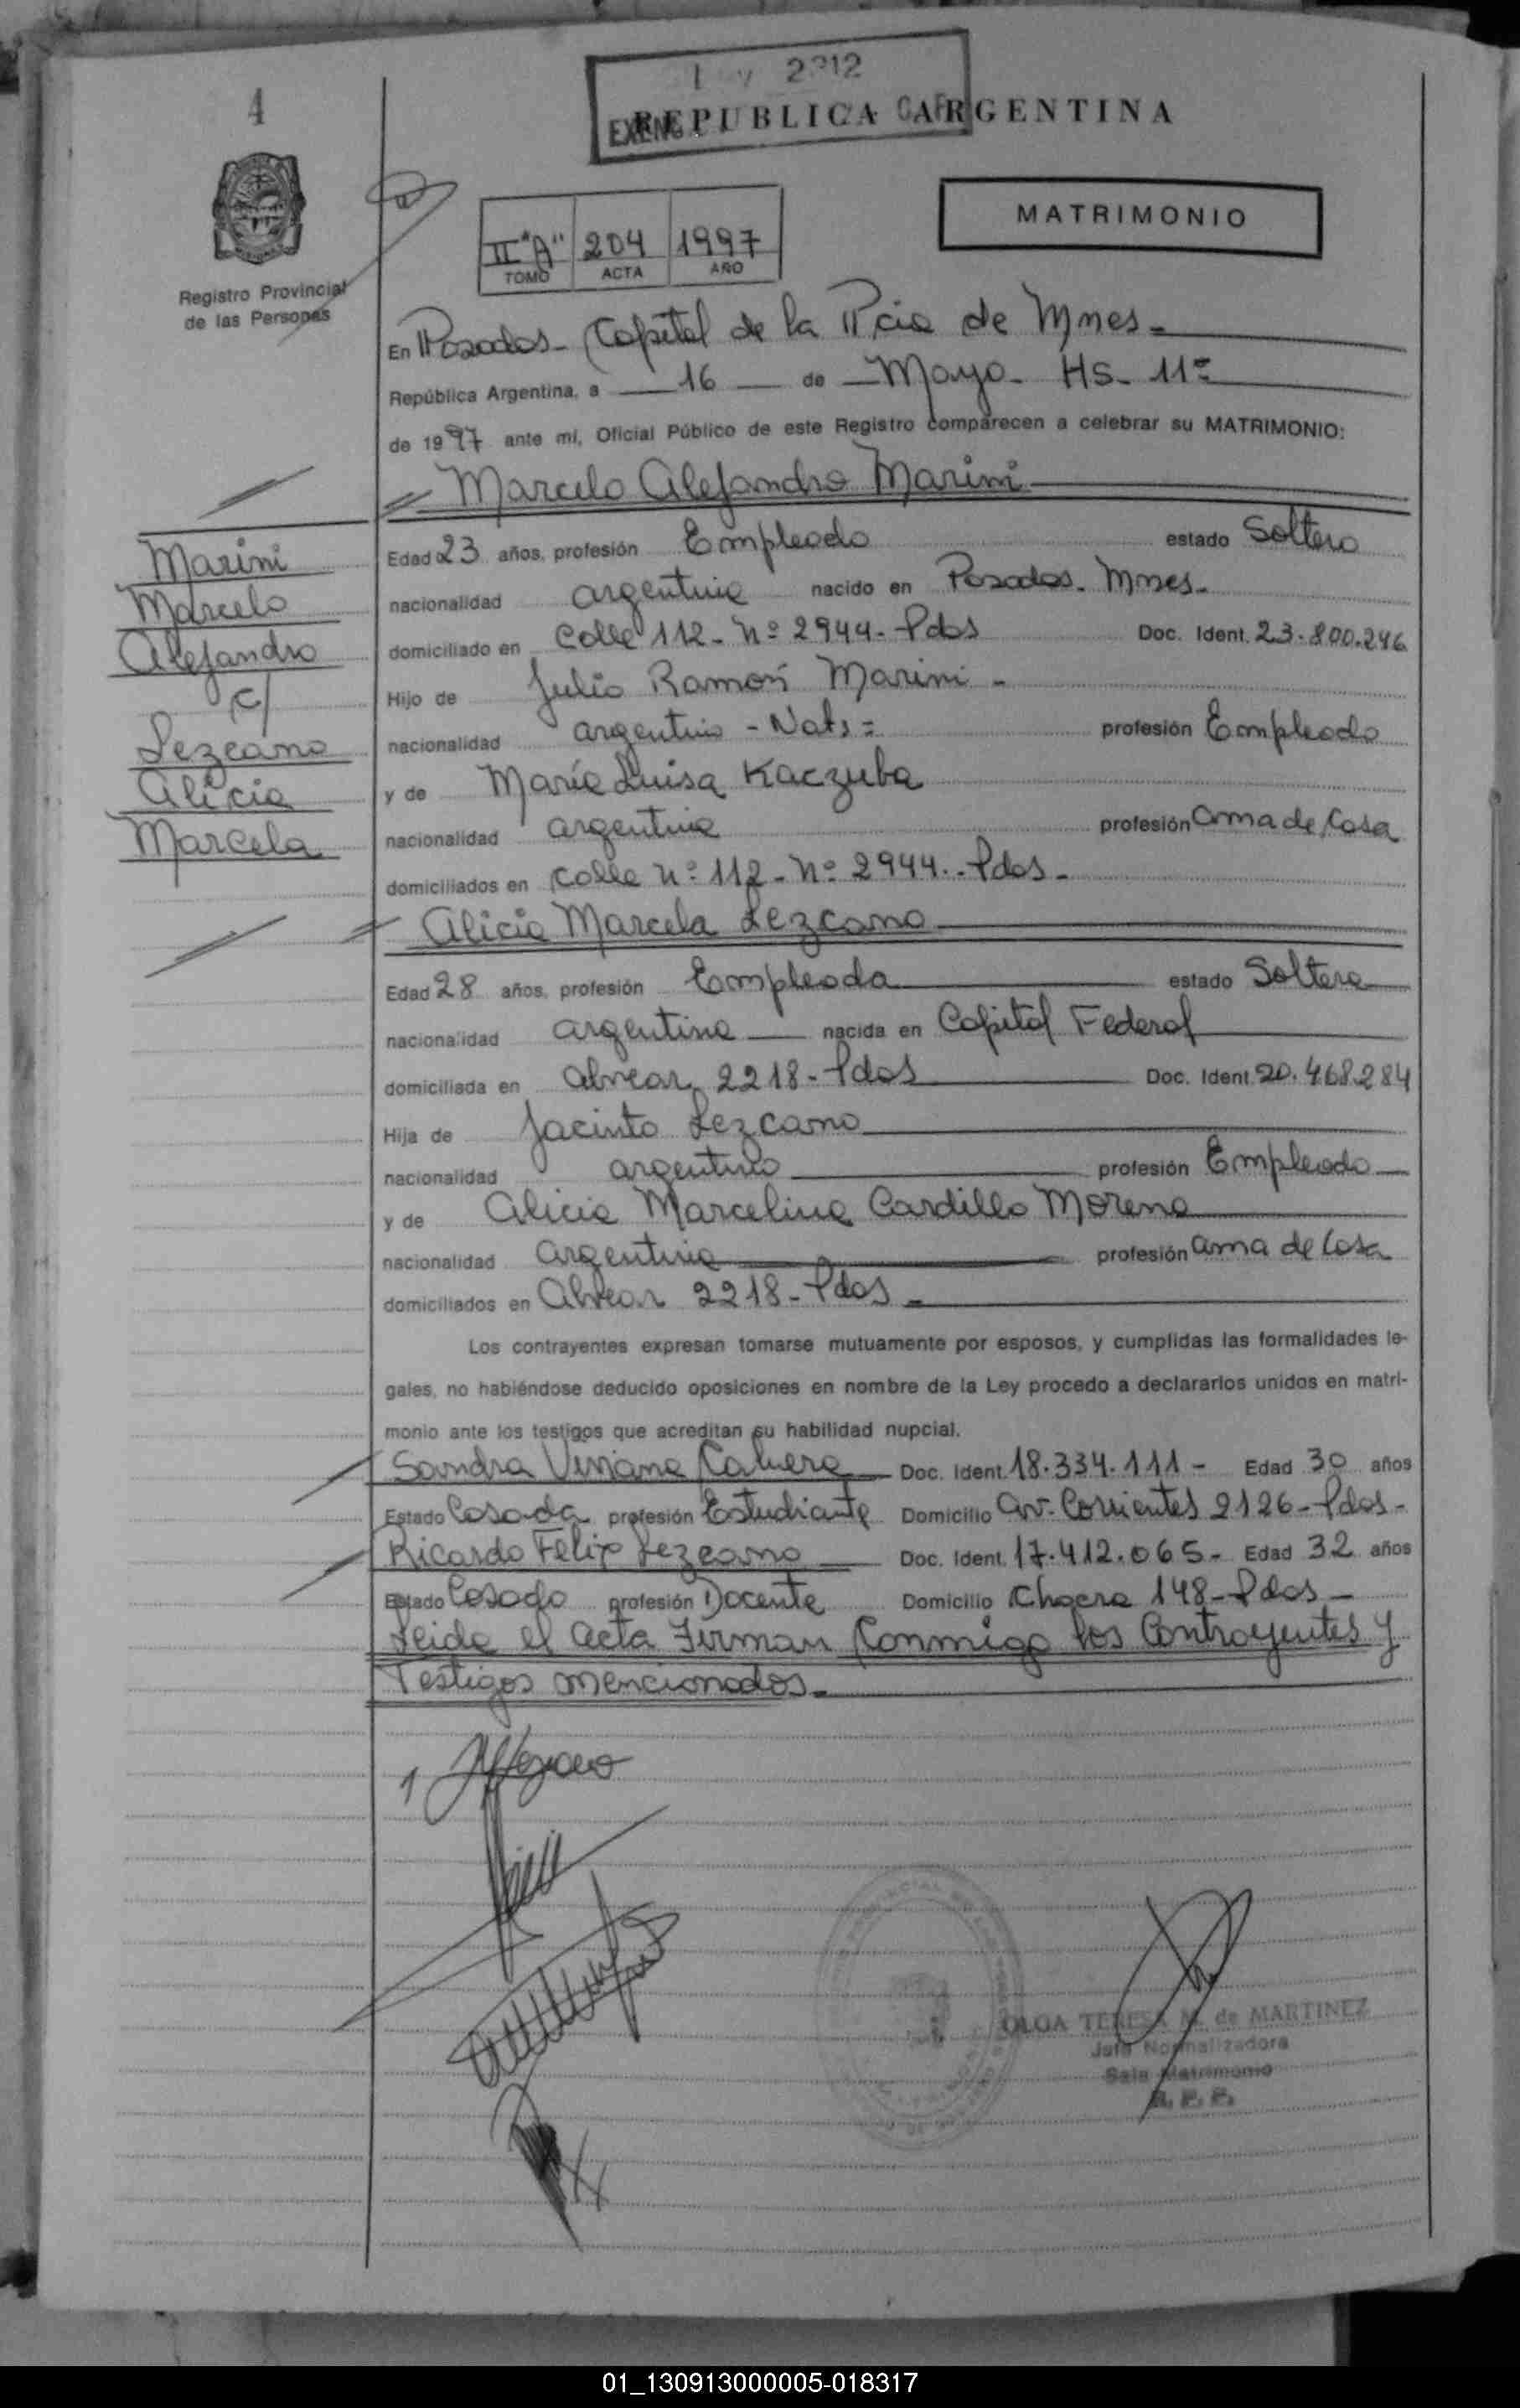 4
2312
REPUBLICA ARGENTINA
MATRIMONIO
II "A" 204 1997
TOMO ACTA AÑO
Registro Provincial
de las Personas
En Posadas - Capital de la Pcia de Mnes.-
República Argentina, a 16 de Mayo - Hs - 11=
de 1997 ante mi, Oficial Público de este Registro comparecen a celebrar su MATRIMONIO:
Marcelo Alejandro Marini
Marini
Marcelo
Alejandro
c/
Lezcano
Alicia
Marcela
Edad 23 años, profesión Empleado estado Soltero
nacionalidad argentina nacido en Posadas - Mnes.-
domiciliado en Calle 112 - Nº 2944 - Pdas Doc. Ident. 23.800.246
Hijo de Julio Ramón Marini -
nacionalidad argentino - Nats = profesión Empleado
y de María Luisa Kaczuba
nacionalidad argentina profesión ama de Casa
domiciliados en Calle Nº 112 - Nº 2944.- Pdas -
Alicia Marcela Lezcano
Edad 28 años, profesión Empleada estado Soltera
nacionalidad argentina nacida en Capital Federal
domiciliada en Alvear 2218 - Pdas Doc. Ident. 20.468.284
Hija de Jacinto Lezcano
nacionalidad argentino profesión Empleado
y de Alicia Marcelina Cardillo Moreno
nacionalidad argentina profesión ama de Casa
domiciliados en Alvear 2218 - Pdas -
Los contrayentes expresan tomarse mutuamente por esposos, y cumplidas las formalidades le-
gales, no habiéndose deducido oposiciones en nombre de la Ley procedo a declararlos unidos en matri-
monio ante los testigos que acreditan su habilidad nupcial.
Sandra Viviana Cabrera Doc. Ident. 18.334.111 - Edad 30 años
Estado Casada profesión Estudiante Domicilio Av. Corrientes 2126 - Pdas -
Ricardo Felix Lezcano Doc. Ident. 17.412.065 - Edad 32 años
Estado Casado profesión Docente Domicilio Chacra 148 - Pdas -
Leida el acta Firman Conmigo los Contrayentes y
Testigos mencionados -
OLGA TERESA M. de MARTINEZ
Jefa Normalizadora
Sala Matrimonio
01_130913000005-018317